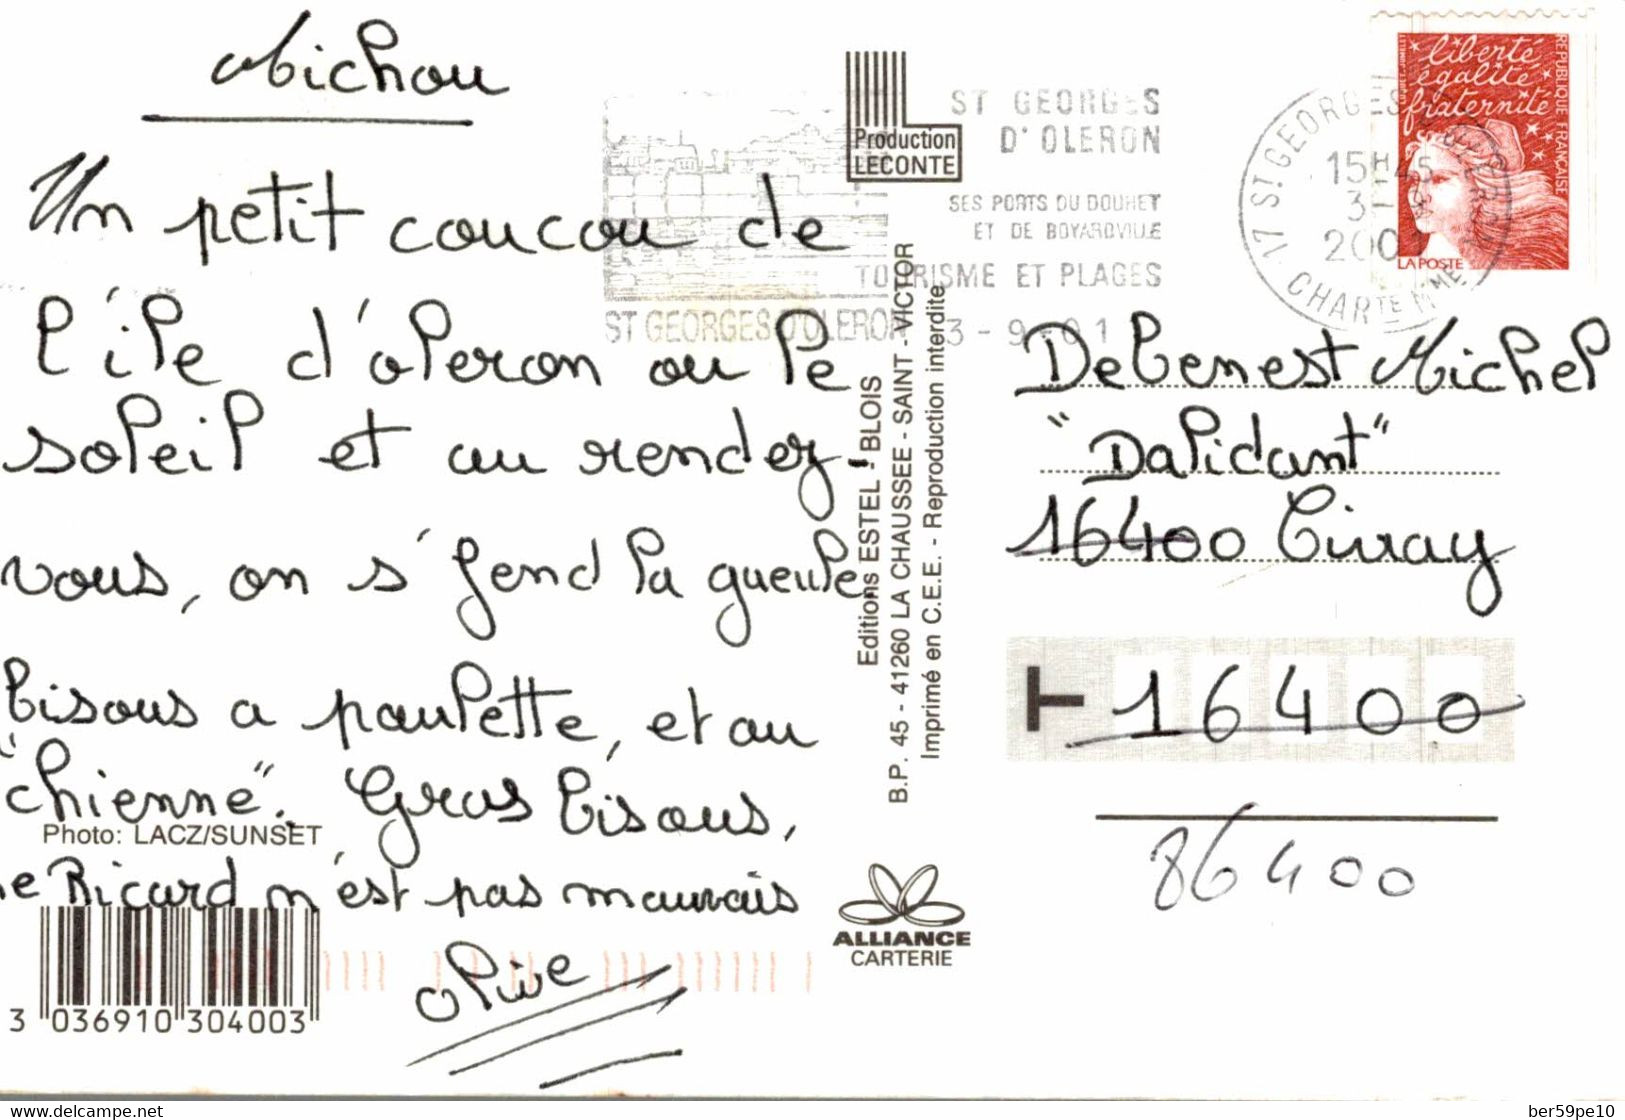 Michou
Un petit coucou de
l'île d'oleron ou le
soleil et au rendez-
vous, on s'fend la gueule.
bisous a paulette, et au
"chienne". Gros bisous,
le Ricard n'est pas mauvais
Olive
Photo: LACZ/SUNSET
3 036910 304003
Production
LECONTE
Editions ESTEL - BLOIS
B.P. 45 - 41260 LA CHAUSSEE - SAINT - VICTOR
Imprimé en C.E.E. - Reproduction interdite
ALLIANCE
CARTERIE
ST GEORGES
D'OLERON
SES PORTS DU DOUHET
ET DE BOYARDVILLE
TOURISME ET PLAGES
ST GEORGES D'OLERON 3-9-01
17 ST GEORGES D'OLERON
15H45
3-
200
CHARTE MME
liberté
égalité
fraternité
REPUBLIQUE FRANÇAISE
LA POSTE
Debenest Michel
"Dalidant"
16400 Civray
16400
86400
delcampe.net
ber59pe10